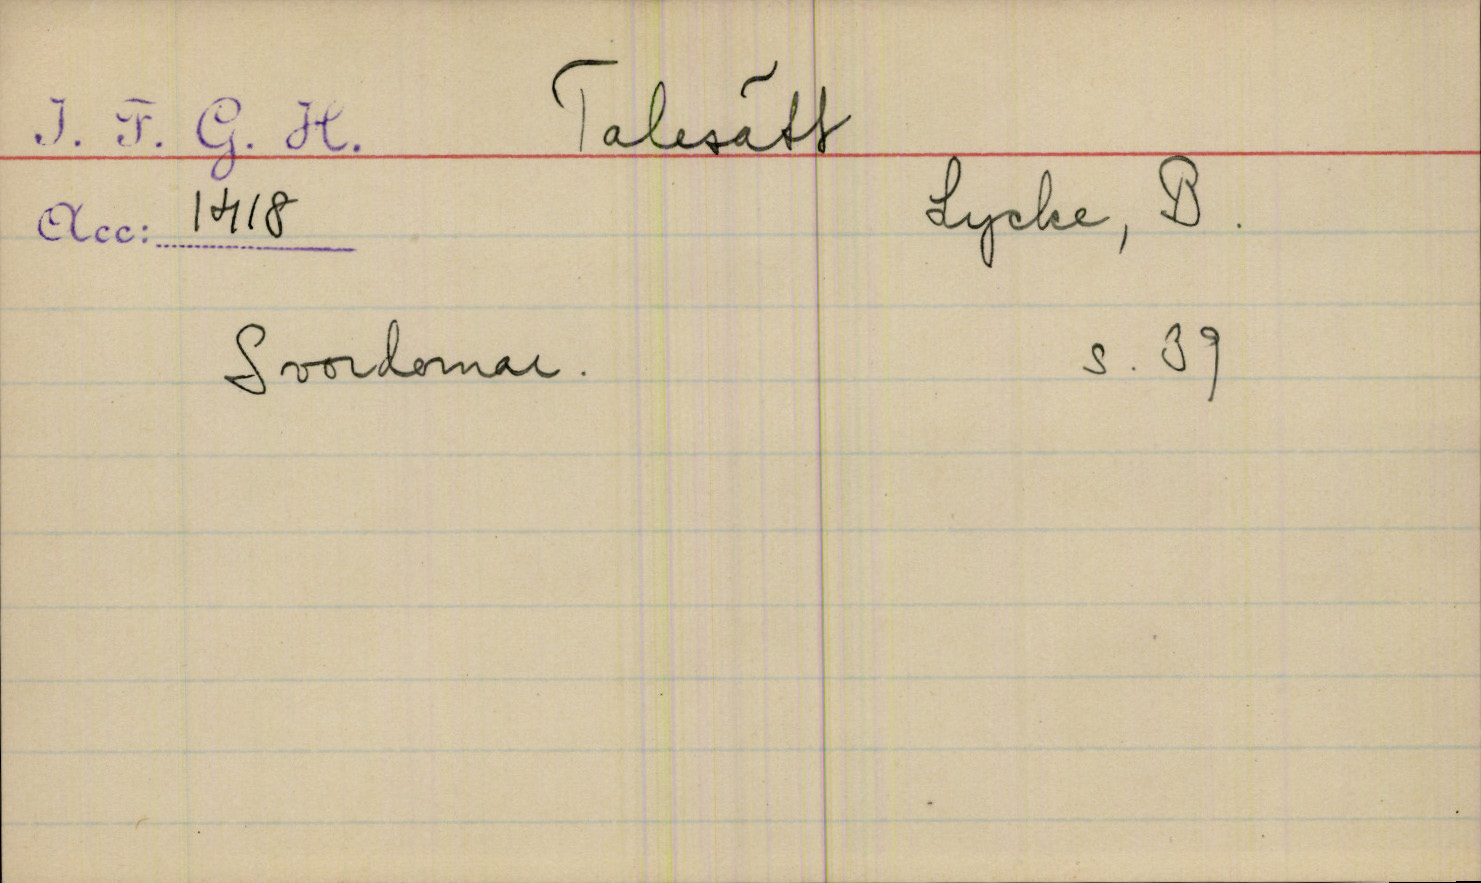 I. F. G. H. Talesätt
Acc: 1418 Lycke, B.
Svordomar. s. 39